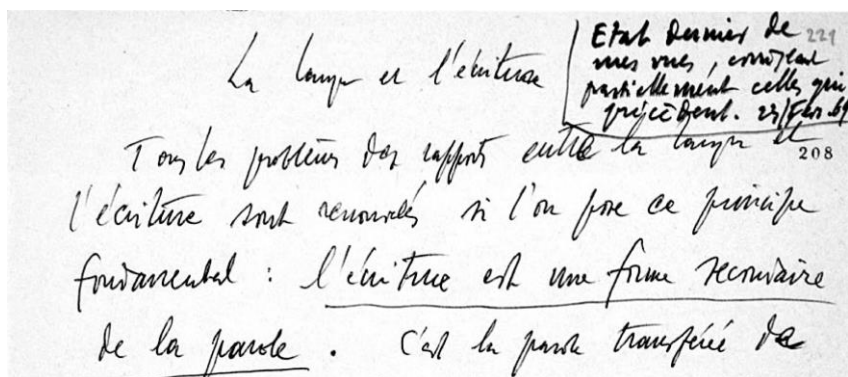 La langue et l'écriture
Etat dernier de 221
mes vues, corrigeant
partiellement celles qui
précèdent. 23/Fév. 69
Tous les problèmes des rapports entre la langue et
208
l'écriture sont renouvelés si l'on pose ce principe
fondamental : l'écriture est une forme secondaire
de la parole. C'est la parole transférée de